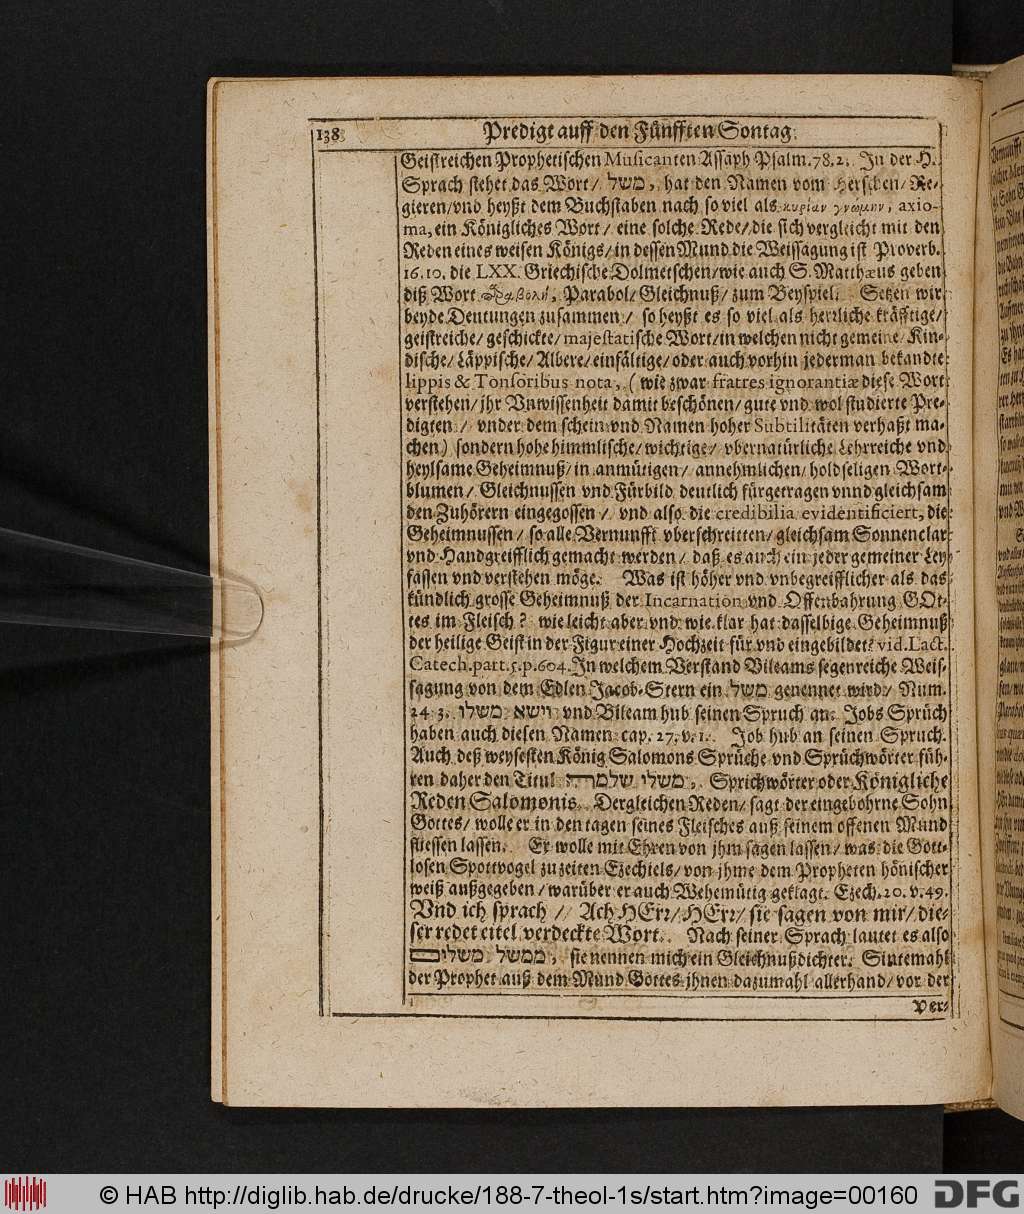 138
Predigt auff den Fünfften Sontag.
Geistreichen Prophetischen Musicanten Assaph Psalm. 78. 2. In der H.
Sprach stehet das Wort / משל, hat den Namen vom Herschen / Re-
gieren / vnd heyßt dem Buchstaben nach so viel als κυρίαν γνώμην, axio-
ma, ein Königliches Wort / eine solche Rede / die sich vergleicht mit den
Reden eines weisen Königs / in dessen Mund die Weissagung ist Proverb.
16. 10. die LXX. Griechische Dolmetschen / wie auch S. Matthæus geben
diß Wort παραβολή, Parabol / Gleichnuß / zum Beyspiel. Setzen wir
beyde Deutungen zusammen / so heyßt es so viel als herrliche kräfftige /
geistreiche / geschickte / majestatische Wort / in welchen nicht gemeine / Kin-
dische / Läppische / Albere / einfältige / oder auch vorhin jederman bekandte
lippis & Tonsoribus nota, (wie zwar fratres ignorantiæ diese Wort
verstehen / jhr Vnwissenheit damit beschönen / gute vnd wol studierte Pre-
digten / vnder dem schein vnd Namen hoher Subtilitäten verhaßt ma-
chen) sondern hohe himmlische / wichtige / vbernatürliche Lehrreiche vnd
heylsame Geheimnuß / in anmütigen / annehmlichen / holdseligen Wort-
blumen / Gleichnussen vnd Fürbild deutlich fürgetragen vnnd gleichsam
den Zuhörern eingegossen / vnd also die credibilia evidentificiert, die
Geheimnussen / so alle Vernunfft vberschreitten / gleichsam Sonnenclar
vnd Handgreifflich gemacht werden / daß es auch ein jeder gemeiner Ley
fassen vnd verstehen möge. Was ist höher vnd vnbegreifflicher als das
kündlich grosse Geheimnuß der Incarnation vnd Offenbahrung GOt-
tes im Fleisch? wie leicht aber vnd wie klar hat dasselbige Geheimnuß
der heilige Geist in der Figur einer Hochzeit für vnd eingebildet? vid. Lact.
Catech. part. 5. p. 604. In welchem Verstand Bileams segenreiche Weis-
sagung von dem Edlen Jacob-Stern ein משל genennet wird / Num.
24. 3. וישא משלו vnd Bileam hub seinen Spruch an. Jobs Sprüch
haben auch diesen Namen cap. 27. v. 1. Job hub an seinen Spruch.
Auch deß weysesten König Salomons Sprüche vnd Sprüchwörter füh-
ren daher den Titul משלי שלמה, Sprichwörter oder Königliche
Reden Salomonis. Dergleichen Reden / sagt der eingebohrne Sohn
Gottes / wolle er in den tagen seines Fleisches auß seinem offenen Mund
fliessen lassen. Er wolle mit Ehren von jhm sagen lassen / was die Gott-
losen Spottvogel zu zeiten Ezechiels / von jhme dem Propheten hönischer
weiß außgegeben / warüber er auch Wehemütig geklagt. Ezech. 20. v. 49.
Vnd ich sprach / Ach HErr / HErr / sie sagen von mir / die-
ser redet eitel verdeckte Wort. Nach seiner Sprach lautet es also
ממשל משלים, sie nennen mich ein Gleichnußdichter. Sintemahl
der Prophet auß dem Mund Gottes jhnen dazumahl allerhand / vor der
Ver-
© HAB http://diglib.hab.de/drucke/188-7-theol-1s/start.htm?image=00160
DFG